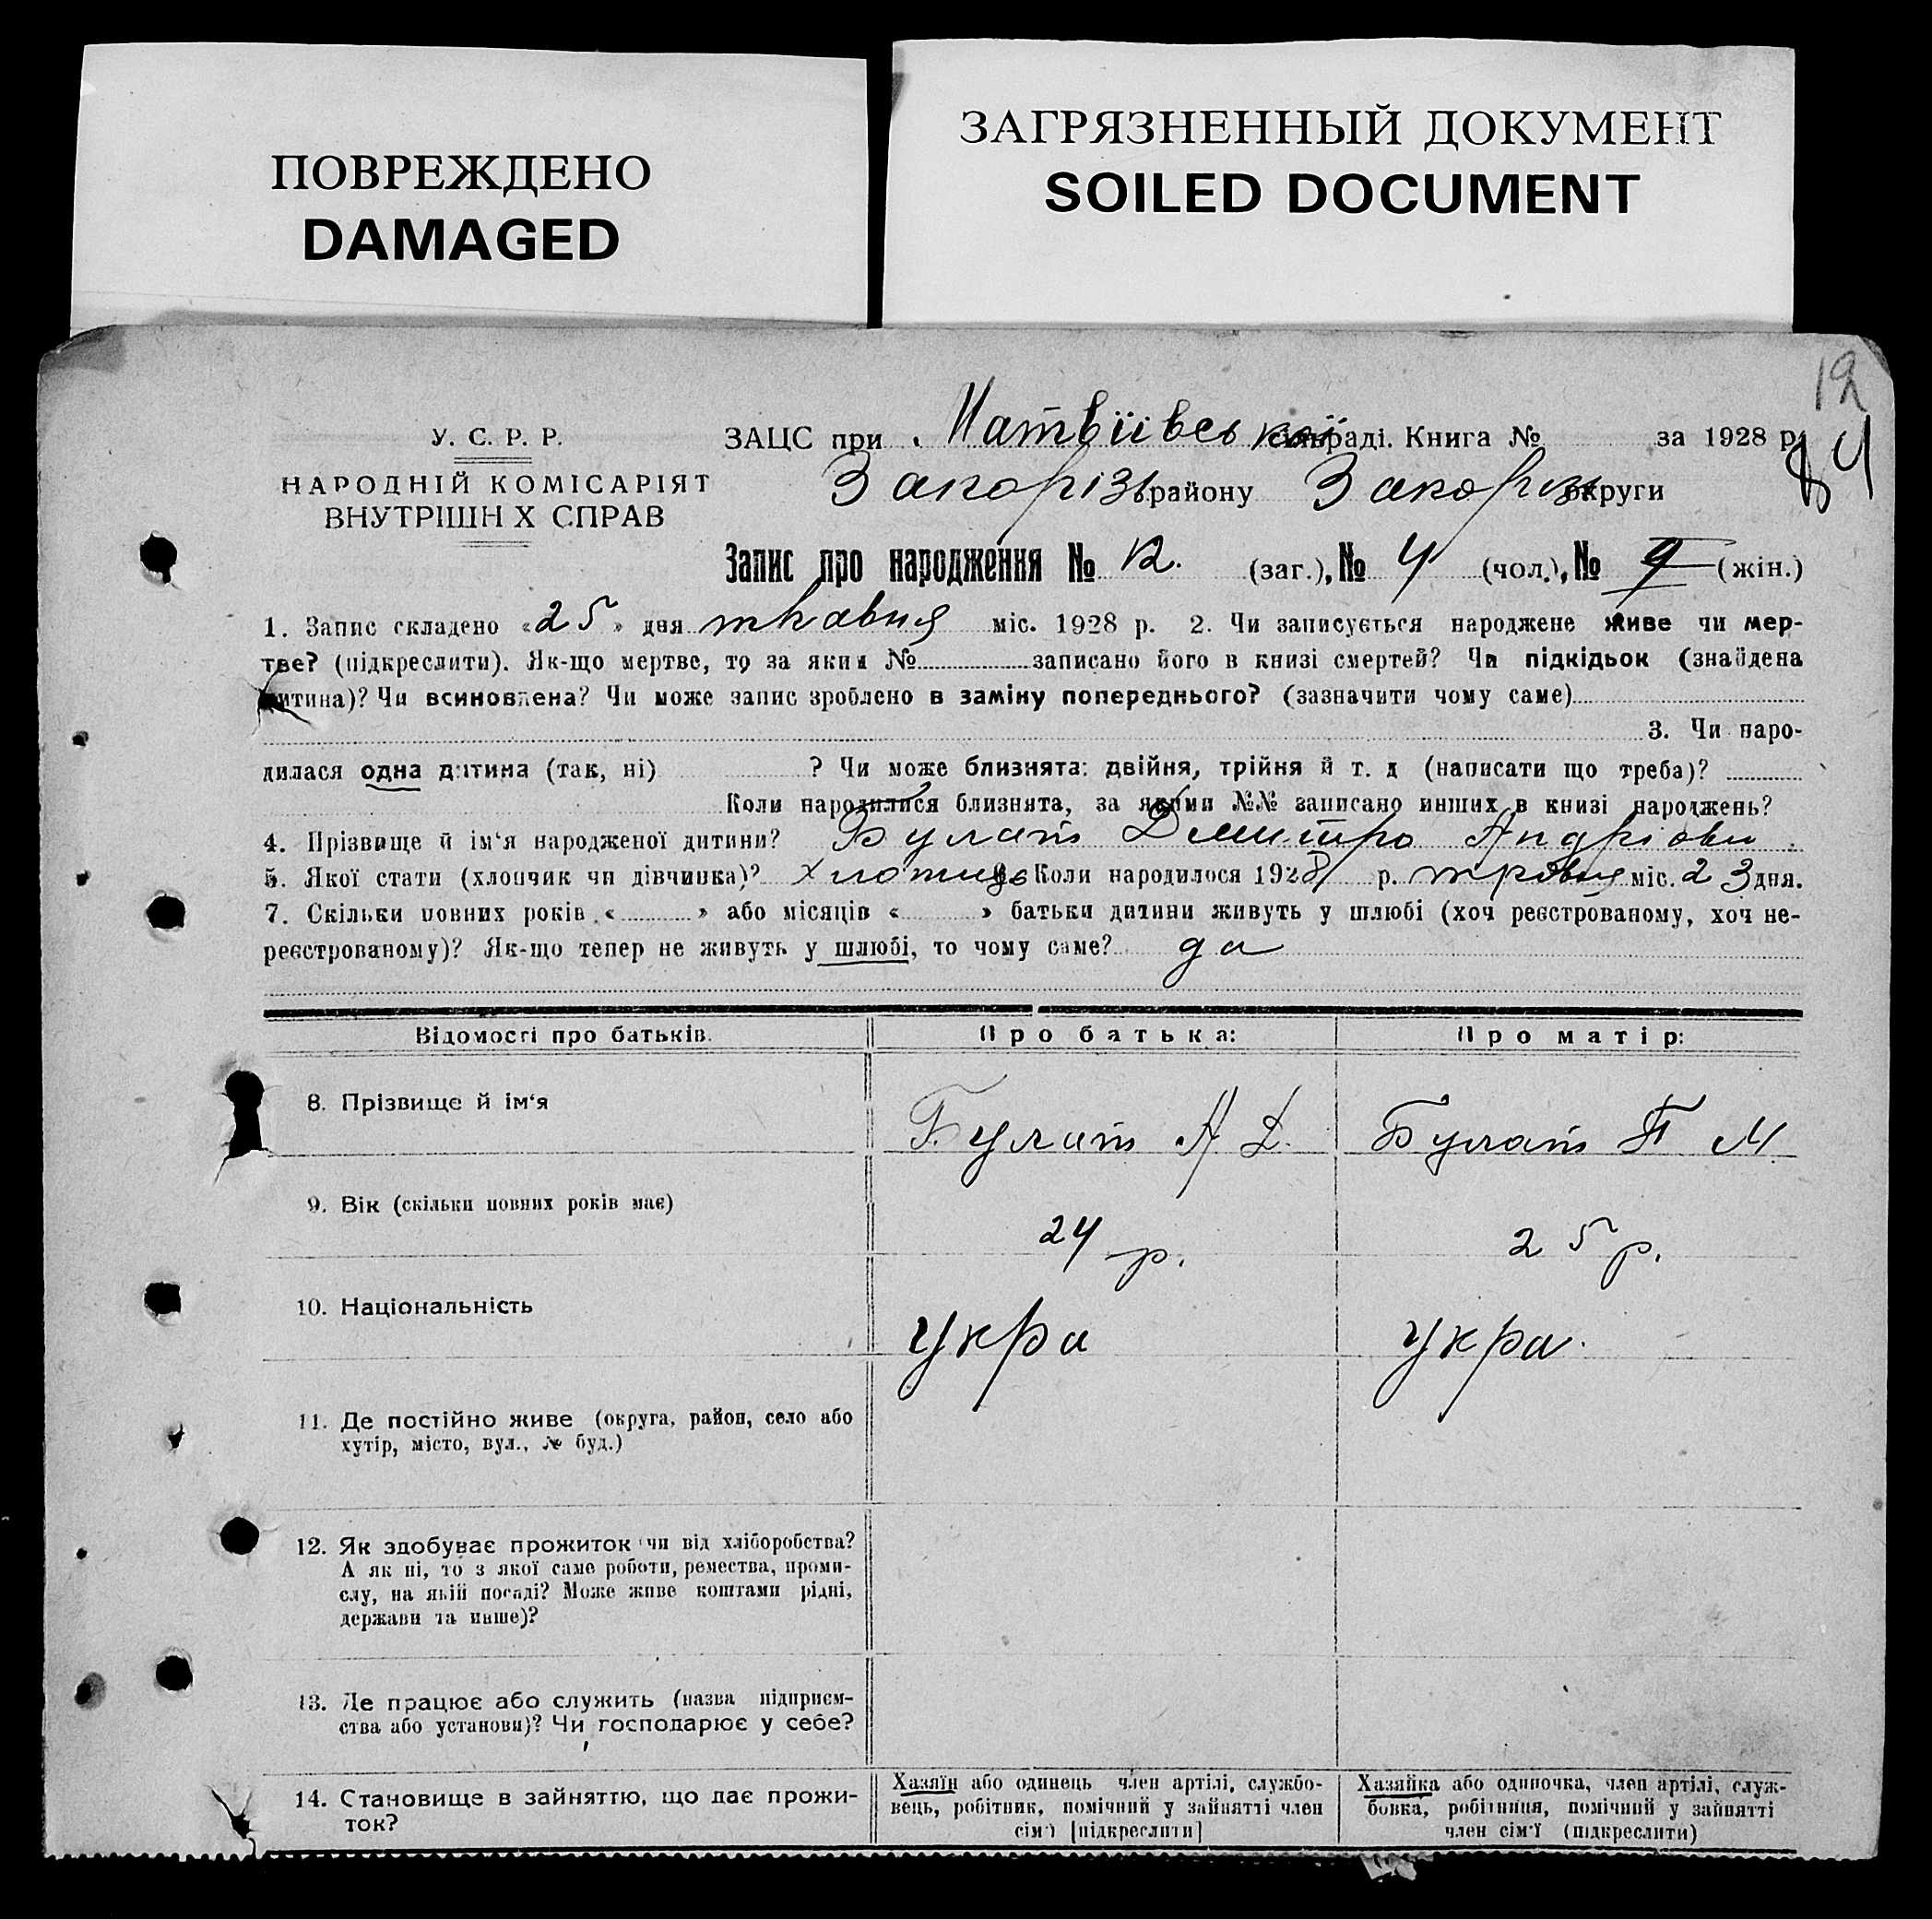 ПОВРЕЖДЕНО
DAMAGED
ЗАГРЯЗНЕННЫЙ ДОКУМЕНТ
SOILED DOCUMENT
12
У. С. Р. Р.
НАРОДНІЙ КОМІСАРІЯТ
ВНУТРІШН Х СПРАВ
ЗАЦС при Матвіївської сільраді. Книга № за 1928 р.
Запорізь району Запоріз округи
Запис про народження № 12. (заг.), № 4 (чол.), № (жін.)
1. Запис складено «25» дня травня міс. 1928 р. 2. Чи записується народжене живе чи мер-
тве? (підкреслити). Як-що мертве, то за яким № записано його в книзі смертей? Чи підкідьок (знайдена
дитина)? Чи всиновлена? Чи може запис зроблено в заміну попереднього? (зазначити чому саме)
3. Чи наро-
дилася одна дитина (так, ні) ? Чи може близнята: двійня, трійня й т. д (написати що треба)?
Коли народилися близнята, за якими №№ записано инших в книзі народжень?
4. Прізвище й ім'я народженої дитини? Булат Дмитро Андріови
5. Якої статі (хлопчик чи дівчинка)? 6. Коли народилося 1928 р. травня міс. 23 дня.
7. Скільки повних років « » або місяців « » батьки дитини живуть у шлюбі (хоч реєстрованому, хоч не-
реєстрованому)? Як-що тепер не живуть у шлюбі, то чому саме? да
Відомості про батьків. Про батька: Про матір:
8. Прізвище й ім'я Булат А Д. Булат П М.
9. Вік (скільки повних років має) 24 р. 25 р.
10. Національність укра укра.
11. Де постійно живе (округа, район, село або
хутір, місто, вул., № буд.)
12. Як здобуває прожиток (чи від хліборобства?
А як ні, то з якої саме роботи, ремества, проми-
слу, на якій посаді? Може живе коштами рідні,
держави та инше)?
13. Де працює або служить (назва підприєм-
ства або установи)? Чи господарює у себе?
14. Становище в зайняттю, що дає прожи-
ток?
Хазяїн або одинець член артілі, службо-
вець, робітник, помічний у зайнятті член
сім'ї [підкреслити]
Хазяйка або одиночка, член артілі, служ-
бовка, робітниця, помічний у зайнятті
член сім'ї (підкреслити)